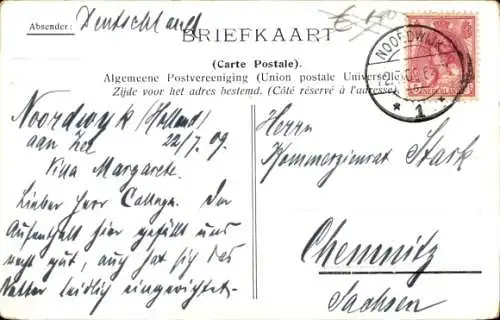 Absender: Deutschland
BRIEFKAART
(Carte Postale).
Algemeene Postvereeniging (Union postale Universelle)
Zijde voor het adres bestemd. (Côté réservé à l'adresse)
NOORDWIJK
1
NEDERLAND
Noordwyk (Holland)
aan Zee 22/7. 09.
Villa Margarete.
Lieber Herr College. Der
Aufenthalt hier gefällt uns
recht gut, auch hat sich das
Wetter leidlich eingerichtet.
Herrn
Kommerzienrat Stark
Chemnitz
Sachsen